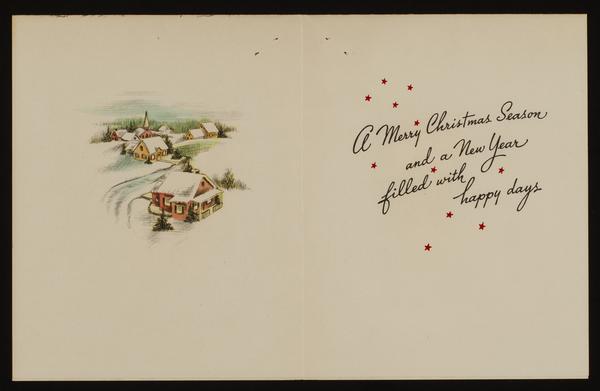 A Merry Christmas Season
and a New Year
filled with
happy days